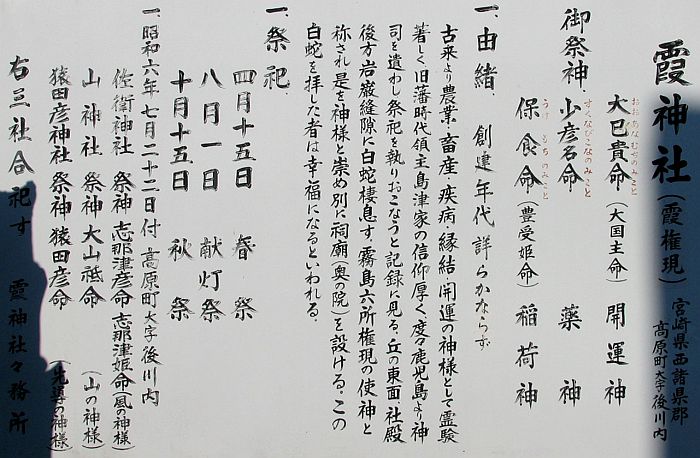 霞神社(霞権現)
宮崎県西諸県郡
高原町大字後川内
御祭神、
大已貴命(大国主命)開運神
おおあなむちのみこと
少彦名命 薬神
すくなびこなのみこと
保食命(豊受姫命)稲荷神
うけもちのみこと
一、由緒、創建年代詳らかならず
古来より農業・畜産・疾病・縁結・開運の神様として霊験
著しく旧藩時代領主島津家の信仰厚く、度々鹿児島より神
司を遣わし祭祀を執りおこなうと記録に見る、丘の東面、社殿
後方、岩巌縫隙に白蛇棲息す、霧島六所権現の使神と
祢され是を神様と崇め別に祠廟(奥の院)を設ける。この
白蛇を拝した者は幸福になるといわれる。
一、祭祀
四月十五日 春祭
八月一日 献灯祭
十月十五日 秋祭
一、昭和六年七月二十二日付 高原町大字後川内
佐衛神社 祭神 志那津彦命 志那津姫命(風の神様)
山神社 祭神 大山祗命 (山の神様)
猿田彦神社 祭神 猿田彦命 (先導の神様)
右三社合祀す 霞神社々務所